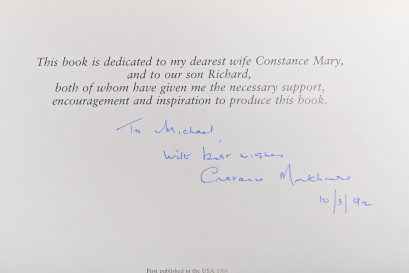 This book is dedicated to my dearest wife Constance Mary,
and to our son Richard,
both of whom have given me the necessary support,
encouragement and inspiration to produce this book.
To Michael,
With best wishes
10/3/92
First published in the USA